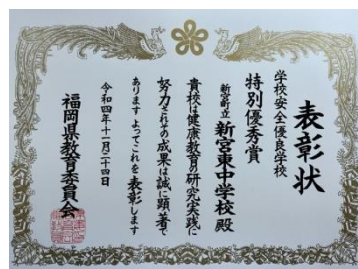 表彰状
学校安全優良学校
特別優秀賞
新宮町立 新宮東中学校 殿
貴校は健康教育の研究実践に
努力されその成果は誠に顕著で
あります よってこれを表彰します
令和四年十一月二十四日
福岡県教育委員会